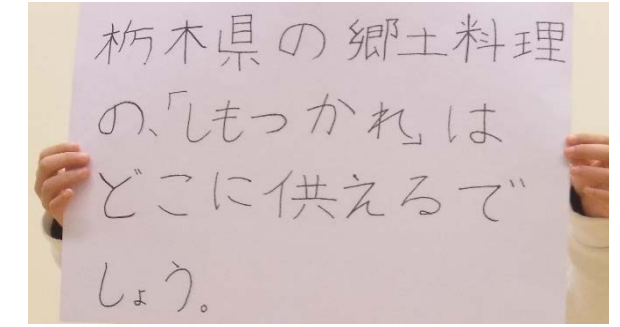 栃木県の郷土料理
の、「しもつかれ」は
どこに供えるで
しょう。